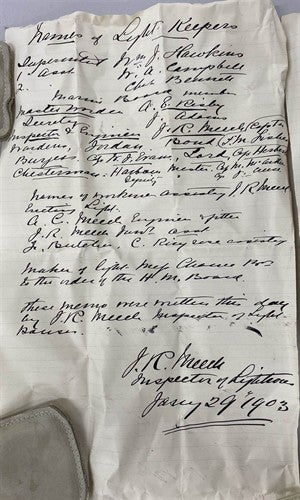 Names of Light Keepers
Superintendt Wm J. Hawkins
1 Asst W. A. Campbell
2 " Chas Bennett
Marine Board member
Master Warden A. E. Risby
Secretary J. Adams
Inspector & Engineer J. R. Meech
Wardens, Jordan Bond
Burgess Capt J. Evans, Lord, Capt
Chesterman. Harbour Master, Capt M.
Deputy
Names of workmen assisting J R Meech
Erecting Light.
A. C. Meech Engineer & fitter
J. R. Meech Junr asst
J. Butcher, C. Ring were assisting
Maker of light. Messrs Chance Bros
to the order of the H. M. Board
these memo were written this day
by J. R. Meech Inspector of Light-
houses.
J. R. Meech
Inspector of Lighthouses
Jany 29th 1903